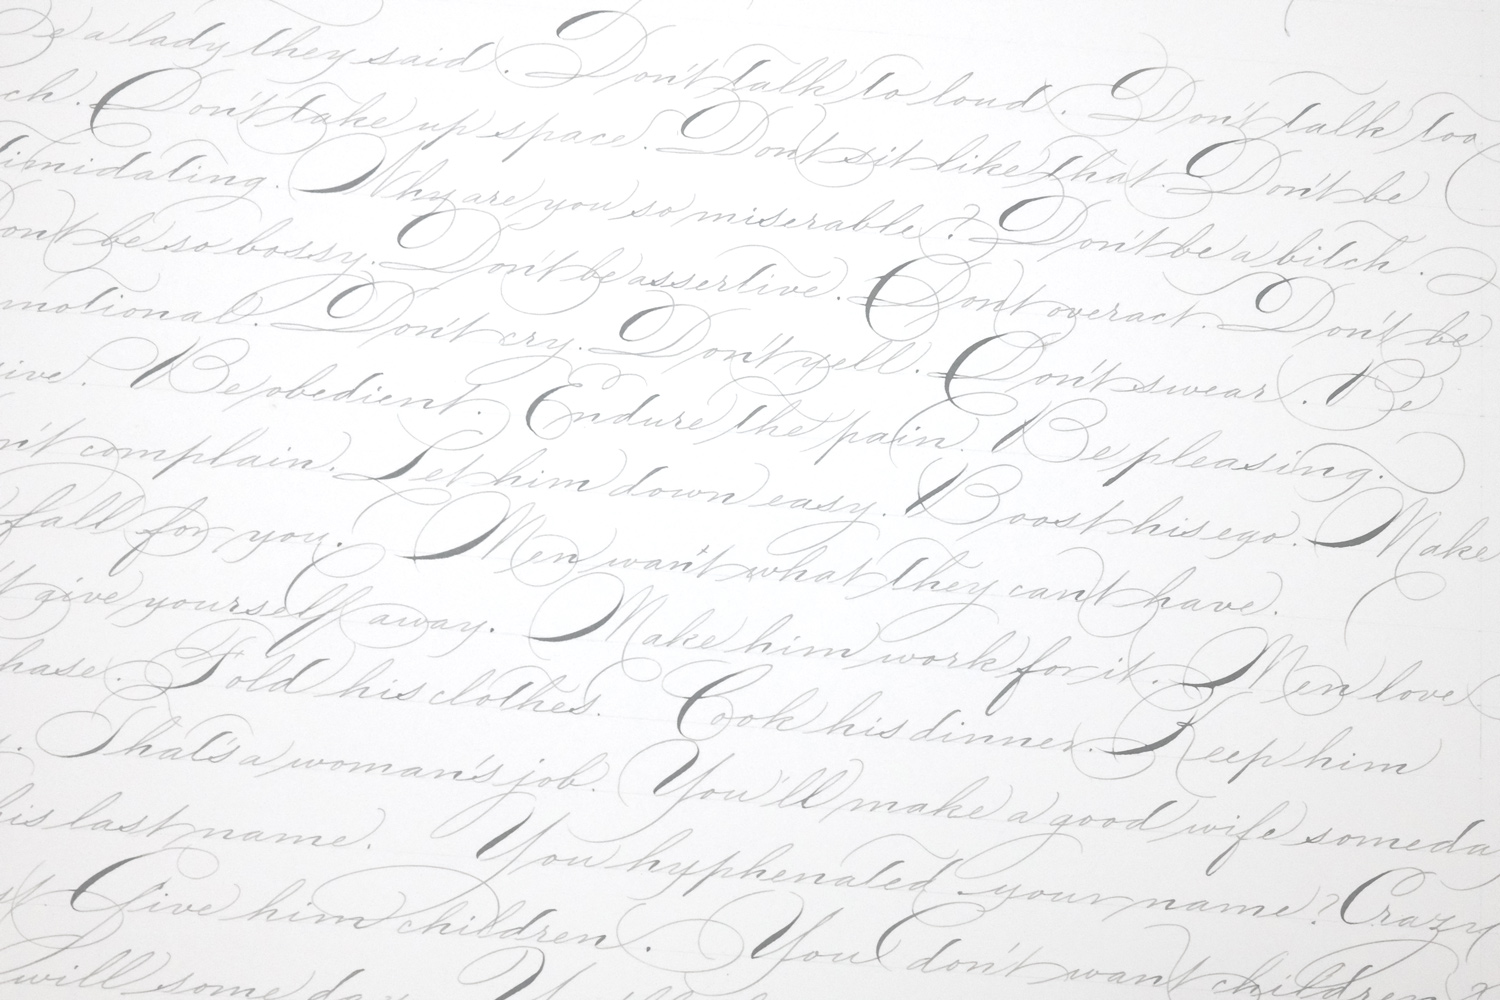 Be a lady they said. Don't talk to loud. Don't talk too
ch. Don't take up space. Dont sit like that. Don't be
timidating. Why are you so miserable? Don't be a bitch.
ont be so bossy. Don't be assertive. Dont overact. Don't be
motional. Don't cry. Don't yell. Don't swear. Be
ive. Be obedient. Endure the pain. Be pleasing.
n't complain. Let him down easy. Boost his ego. Make
fall for you. Men want what they cant have.
't give yourself away. Make him work for it. Men love
hase. Fold his clothes. Cook his dinner. Keep him
. That's a woman's job. You'll make a good wife someda
his last name. You hyphenated your name? Crazy
Give him children. You don't want children?
will some day.